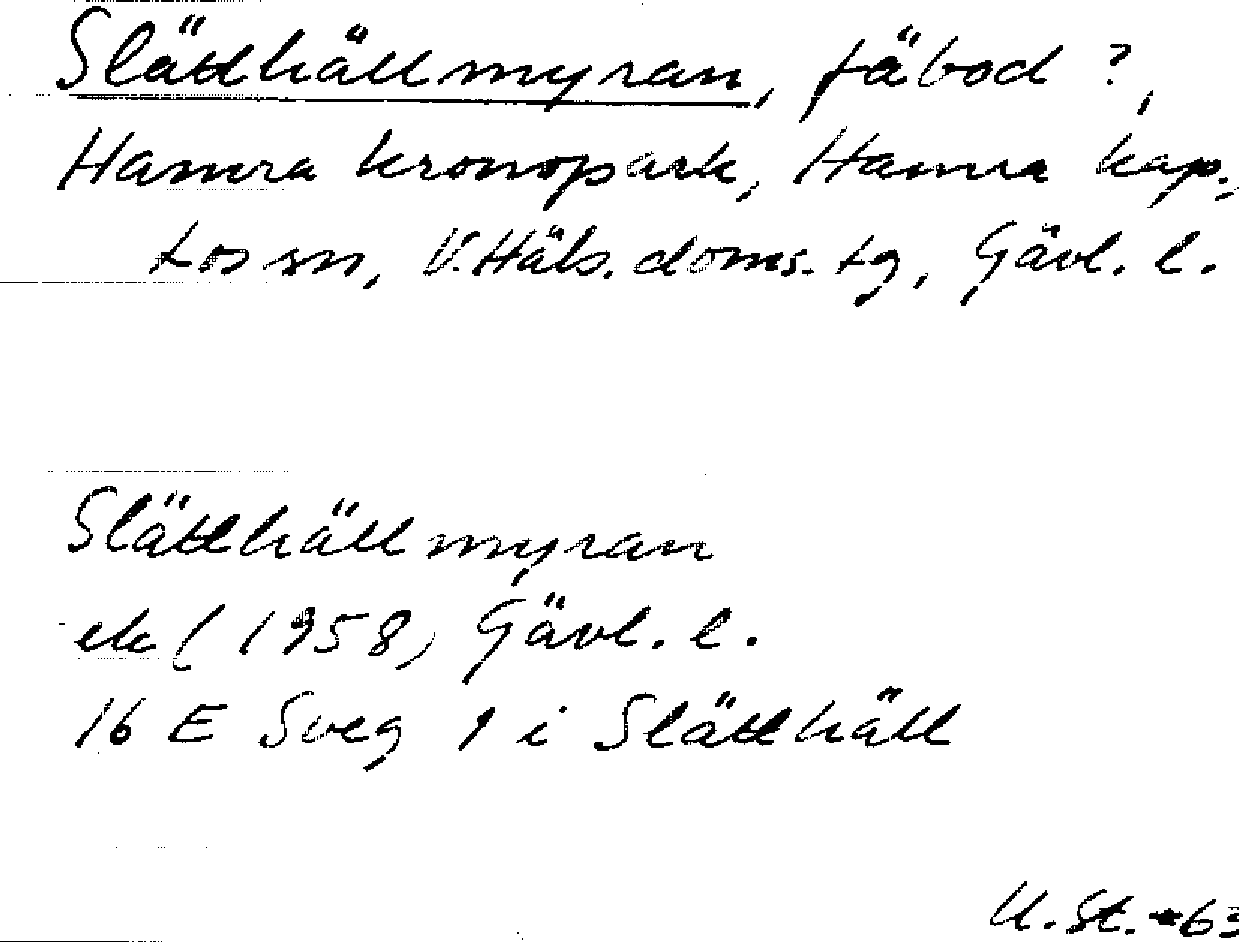 Slätthällmyran, fäbod ?,
Hamra kronopark, Hamra kap.,
Los sn, V. Häls. doms. tg, Gävl. l.
Slätthällmyran
ek (1958) Gävl. l.
16 E Sveg 1 i Slätthäll
U. St. -63